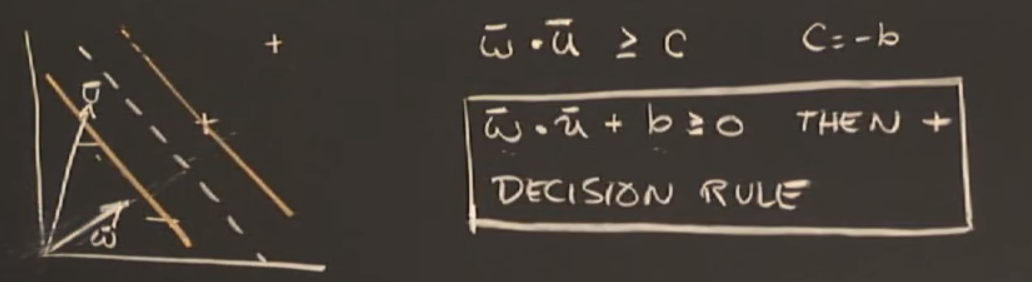 +
ū
+
ω̄
ω̄ · ū ≥ c    c = -b
ω̄ · ū + b ≥ 0 THEN +
DECISION RULE